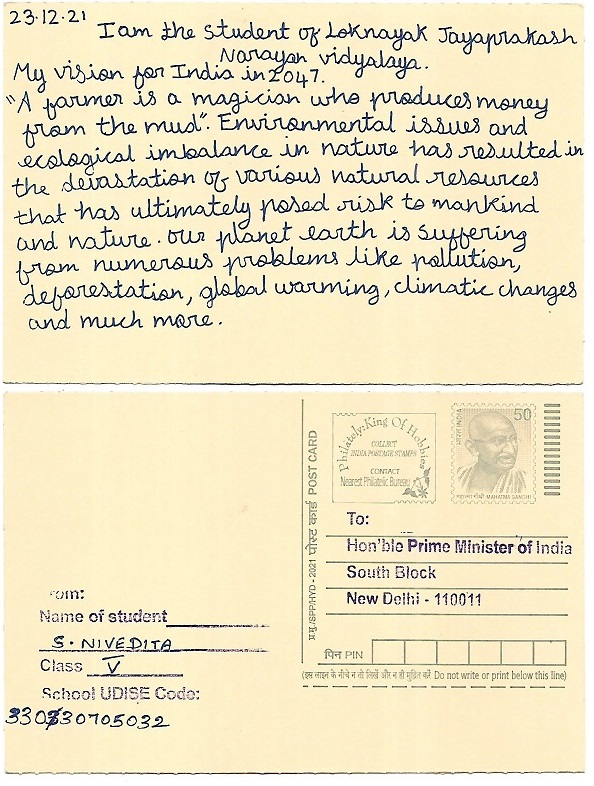 23.12.21
I am the student of Loknayak Jayaprakash
Narayan vidyalaya.
My vision for India in 2047.
"A farmer is a magician who produces money
from the mud". Environmental issues and
ecological imbalance in nature has resulted in
the devastation of various natural resources
that has ultimately posed risk to mankind
and nature. Our planet earth is suffering
from numerous problems like pollution,
deforestation, global warming, climatic changes
and much more.
Philately: King Of Hobbies
COLLECT
INDIA POSTAGE STAMPS
CONTACT
Nearest Philatelic Bureau
भारत INDIA
50
महात्मा गाँधी MAHATMA GANDHI
प्र.मु./SPP/HYD - 2021 पोस्ट कार्ड POST CARD
To:
Hon'ble Prime Minister of India
South Block
New Delhi - 110011
पिन PIN
(इस लाइन के नीचे न तो लिखें और न ही मुद्रित करें Do not write or print below this line)
From:
Name of student
S. NIVEDITA
Class V
School UDISE Code:
330730705032